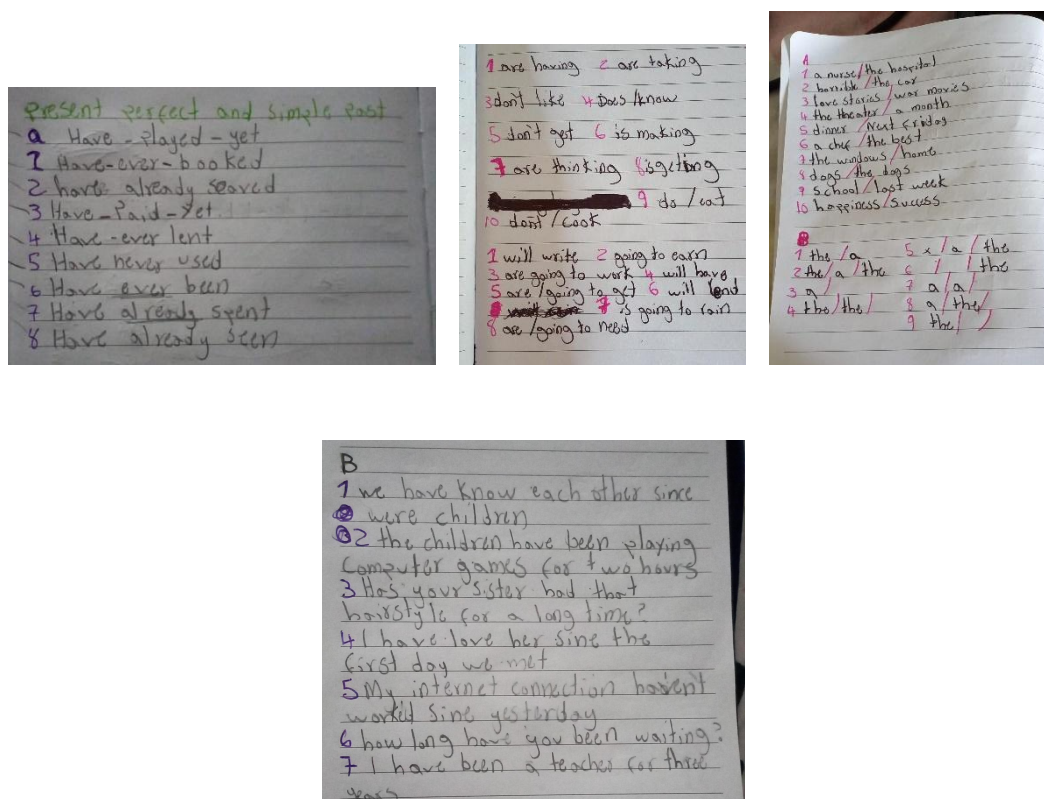 Present perfect and simple past
a Have - played - yet
1 Have - ever - booked
2 have already saved
3 Have - Paid - Yet
4 Have - ever lent
5 Have never used
6 Have ever been
7 Have already spent
8 Have already seen
1 are having 2 are taking
3 don't like 4 Does / know
5 don't get 6 is making
7 are thinking 8 is getting
9 do / eat
10 don't / cook
1 will write 2 going to earn
3 are going to work 4 will have
5 are / going to get 6 will lend
7 is going to rain
8 are / going to need
A
1 a nurse / the hospital
2 horrible / the car
3 love stories / war movies
4 the theater / a month
5 dinner / Next friday
6 a chef / the best
7 the windows / home
8 dogs / the dogs
9 school / last week
10 happiness / success
B
1 the / a 5 x / a / the
2 the / a / the 6 / / the
3 a / 7 a / a /
4 the / the / 8 a / the /
9 the / /
B
1 we have know each other since
were children
2 the children have been playing
computer games for two hours
3 Has your sister had that
hairstyle for a long time?
4 I have love her sine the
first day we met
5 My internet connection haven't
worked sine yesterday
6 how long have you been waiting?
7 I have been a teacher for three
years